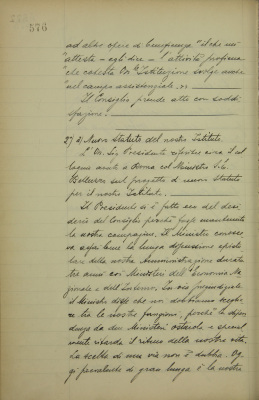 576
ad altre opere di beneficenza "il che mi
"attesta - egli dice - l'attività proficua
"che codesta On. Istituzione svolge anche
"nel campo assistenziale."
Il Consiglio prende atto con soddi-
sfazione.
Nuovo Statuto del nostro Istituto.
L'On. Sig. Presidente riferisce circa il col
loquio avuto a Roma col Ministro S.E.
sul progetto di nuovo Statuto
per il nostro Istituto.
Il Presidente si è fatto eco del desi
derio del Consiglio perchè fosse mantenuta
la nostra compagine. Il Ministro conosce
va assai bene la lunga discussione episto
lare della nostra Amministrazione durata
tre anni coi Ministeri dell'Economia Na
zionale e dell'Interno. In via pregiudiziale
il Ministro disse che noi dobbiamo sceglie
re tra le nostre funzioni, perchè la dipen
denza da due Ministeri ostacola e special
mente ritarda il ritmo della nostra vita.
La scelta di una via non è dubbia. Og
gi prevalente di gran lunga è la nostra